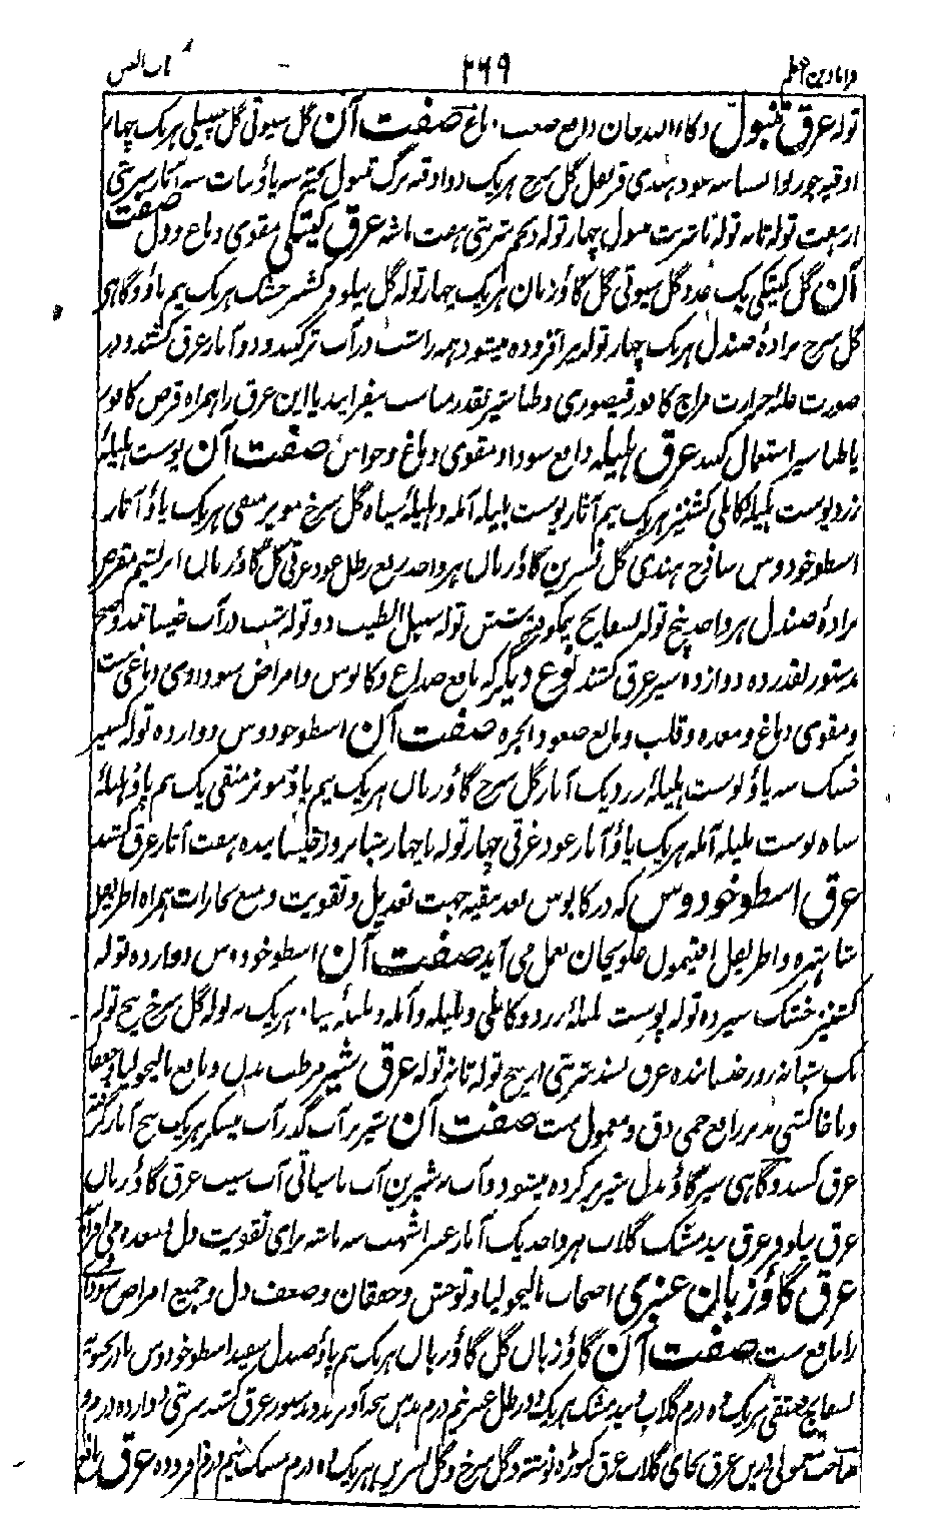 قرابادین اعظم ۳۶۹ باب العین
تولہ عرق تنبول صفت آن گل سیوتی گل چنبیلی ہریک چہار
اوقیہ ہندی قرنفل گل سرخ ہریک دو اوقیہ برگ تنبول سہ پاؤ نبات سہ آثار شربتی
از ہفت تولہ تا نہ تولہ چہار تولہ شربتی ہفت ماشہ عرق کیتکی مقوی دماغ و دل صفت
آن گل کیتکی یک عدد گل سیوتی گل گاؤزبان ہریک چہار تولہ گل نیلوفر کشنیز خشک ہریک نیم پاؤ و گاہی
گل سرخ برادۂ صندل ہریک چہار تولہ نیز افزودہ میشود ہمہ را شب در آب تر کنند و دو آثار عرق کشند و در
صورت غلبۂ حرارت مزاج کافور قیصوری و طباشیر بقدر مناسب بیفزایند یا این عرق را ہمراہ قرص کافور
یا طباشیر استعمال کنند عرق ہلیلہ دافع سودا و مقوی دماغ و حواس صفت آن پوست ہلیلۂ
زرد پوست ہلیلۂ کابلی کشنیز ہریک نیم آثار پوست بلیلہ آملہ و ہلیلۂ سیاہ گل سرخ مویز منقی ہریک پاؤ آثار
اسطوخودوس ساذج ہندی گل نسرین گاؤزبان ہر واحد ربع رطل عود غرقی گل گاؤزبان ابریشم مقرض
برادۂ صندل ہر واحد پنج تولہ بسفایج نیمکوفتہ شش تولہ سنبل الطیب دو تولہ شب در آب خیسانند و صبح
بدستور بقدر دہ دوازدہ سیر عرق کشند نوع دیگر کہ نافع صداع و کابوس و امراض سوداوی دماغی ست
و مقوی دماغ و معدہ و قلب و مانع صعود ابخرہ صفت آن اسطوخودوس دوازدہ تولہ کشنیز
خشک سہ پاؤ پوست ہلیلۂ زرد یک آثار گل سرخ گاؤزبان ہریک نیم پاؤ مویز منقی یک نیم پاؤ ہلیلۂ
سیاہ پوست بلیلہ آملہ ہریک پاؤ آثار عود غرقی چہار تولہ تا چہار شبانروز خیسانیدہ ہفت آثار عرق کشند
عرق اسطوخودوس کہ در کابوس بعد تنقیہ جہت تعدیل و تقویت و منع بخارات ہمراہ اطریفل
شاہترہ و اطریفل افتیمون بعمل می آید صفت آن اسطوخودوس دوازدہ تولہ
کشنیز خشک سیزدہ تولہ پوست ہلیلۂ زرد و کابلی و بلیلہ و آملہ و ہلیلۂ سیاہ ہریک نہ تولہ گل سرخ پنج تولہ
یک شبانہ روز خیسانده عرق کشند شربتی از پنج تولہ تا نہ تولہ عرق شیر مرطب بدن و نافع مالیخولیا و خفقان
رافع حمی دق و معمول ست صفت آن شیر بز آب گذر آب نیشکر ہریک پنج آثار گرفتہ
عرق کشند و گاہی شیر گاؤ بدل شیر بز کردہ میشود و آب شیرین آب ناسپاتی آب سیب عرق گاؤزبان
عرق نیلوفر عرق بیدمشک گلاب ہر واحد یک آثار عنبر اشہب سہ ماشہ برای تقویت دل و معدہ می افزایند
عرق گاؤزبان عنبری اصحاب مالیخولیا و توحش و خفقان و ضعف دل و جمیع امراض سوداوی
را نافع ست صفت آن گاؤزبان گل گاؤزبان ہریک نیم پاؤ صندل سفید اسطوخودوس بادرنجبویہ
بسفایج فستقی ہریک دہ درم گلاب و بیدمشک ہریک دو رطل عنبر نیم درم بدستور عرق کشند شربتی دوازدہ درم و
صاحب درین عرق بجای گلاب عرق کیوڑہ نوشتہ و گل سرخ و گل نسرین ہریک دہ درم مشک نیم درم افزودہ عرق نافع